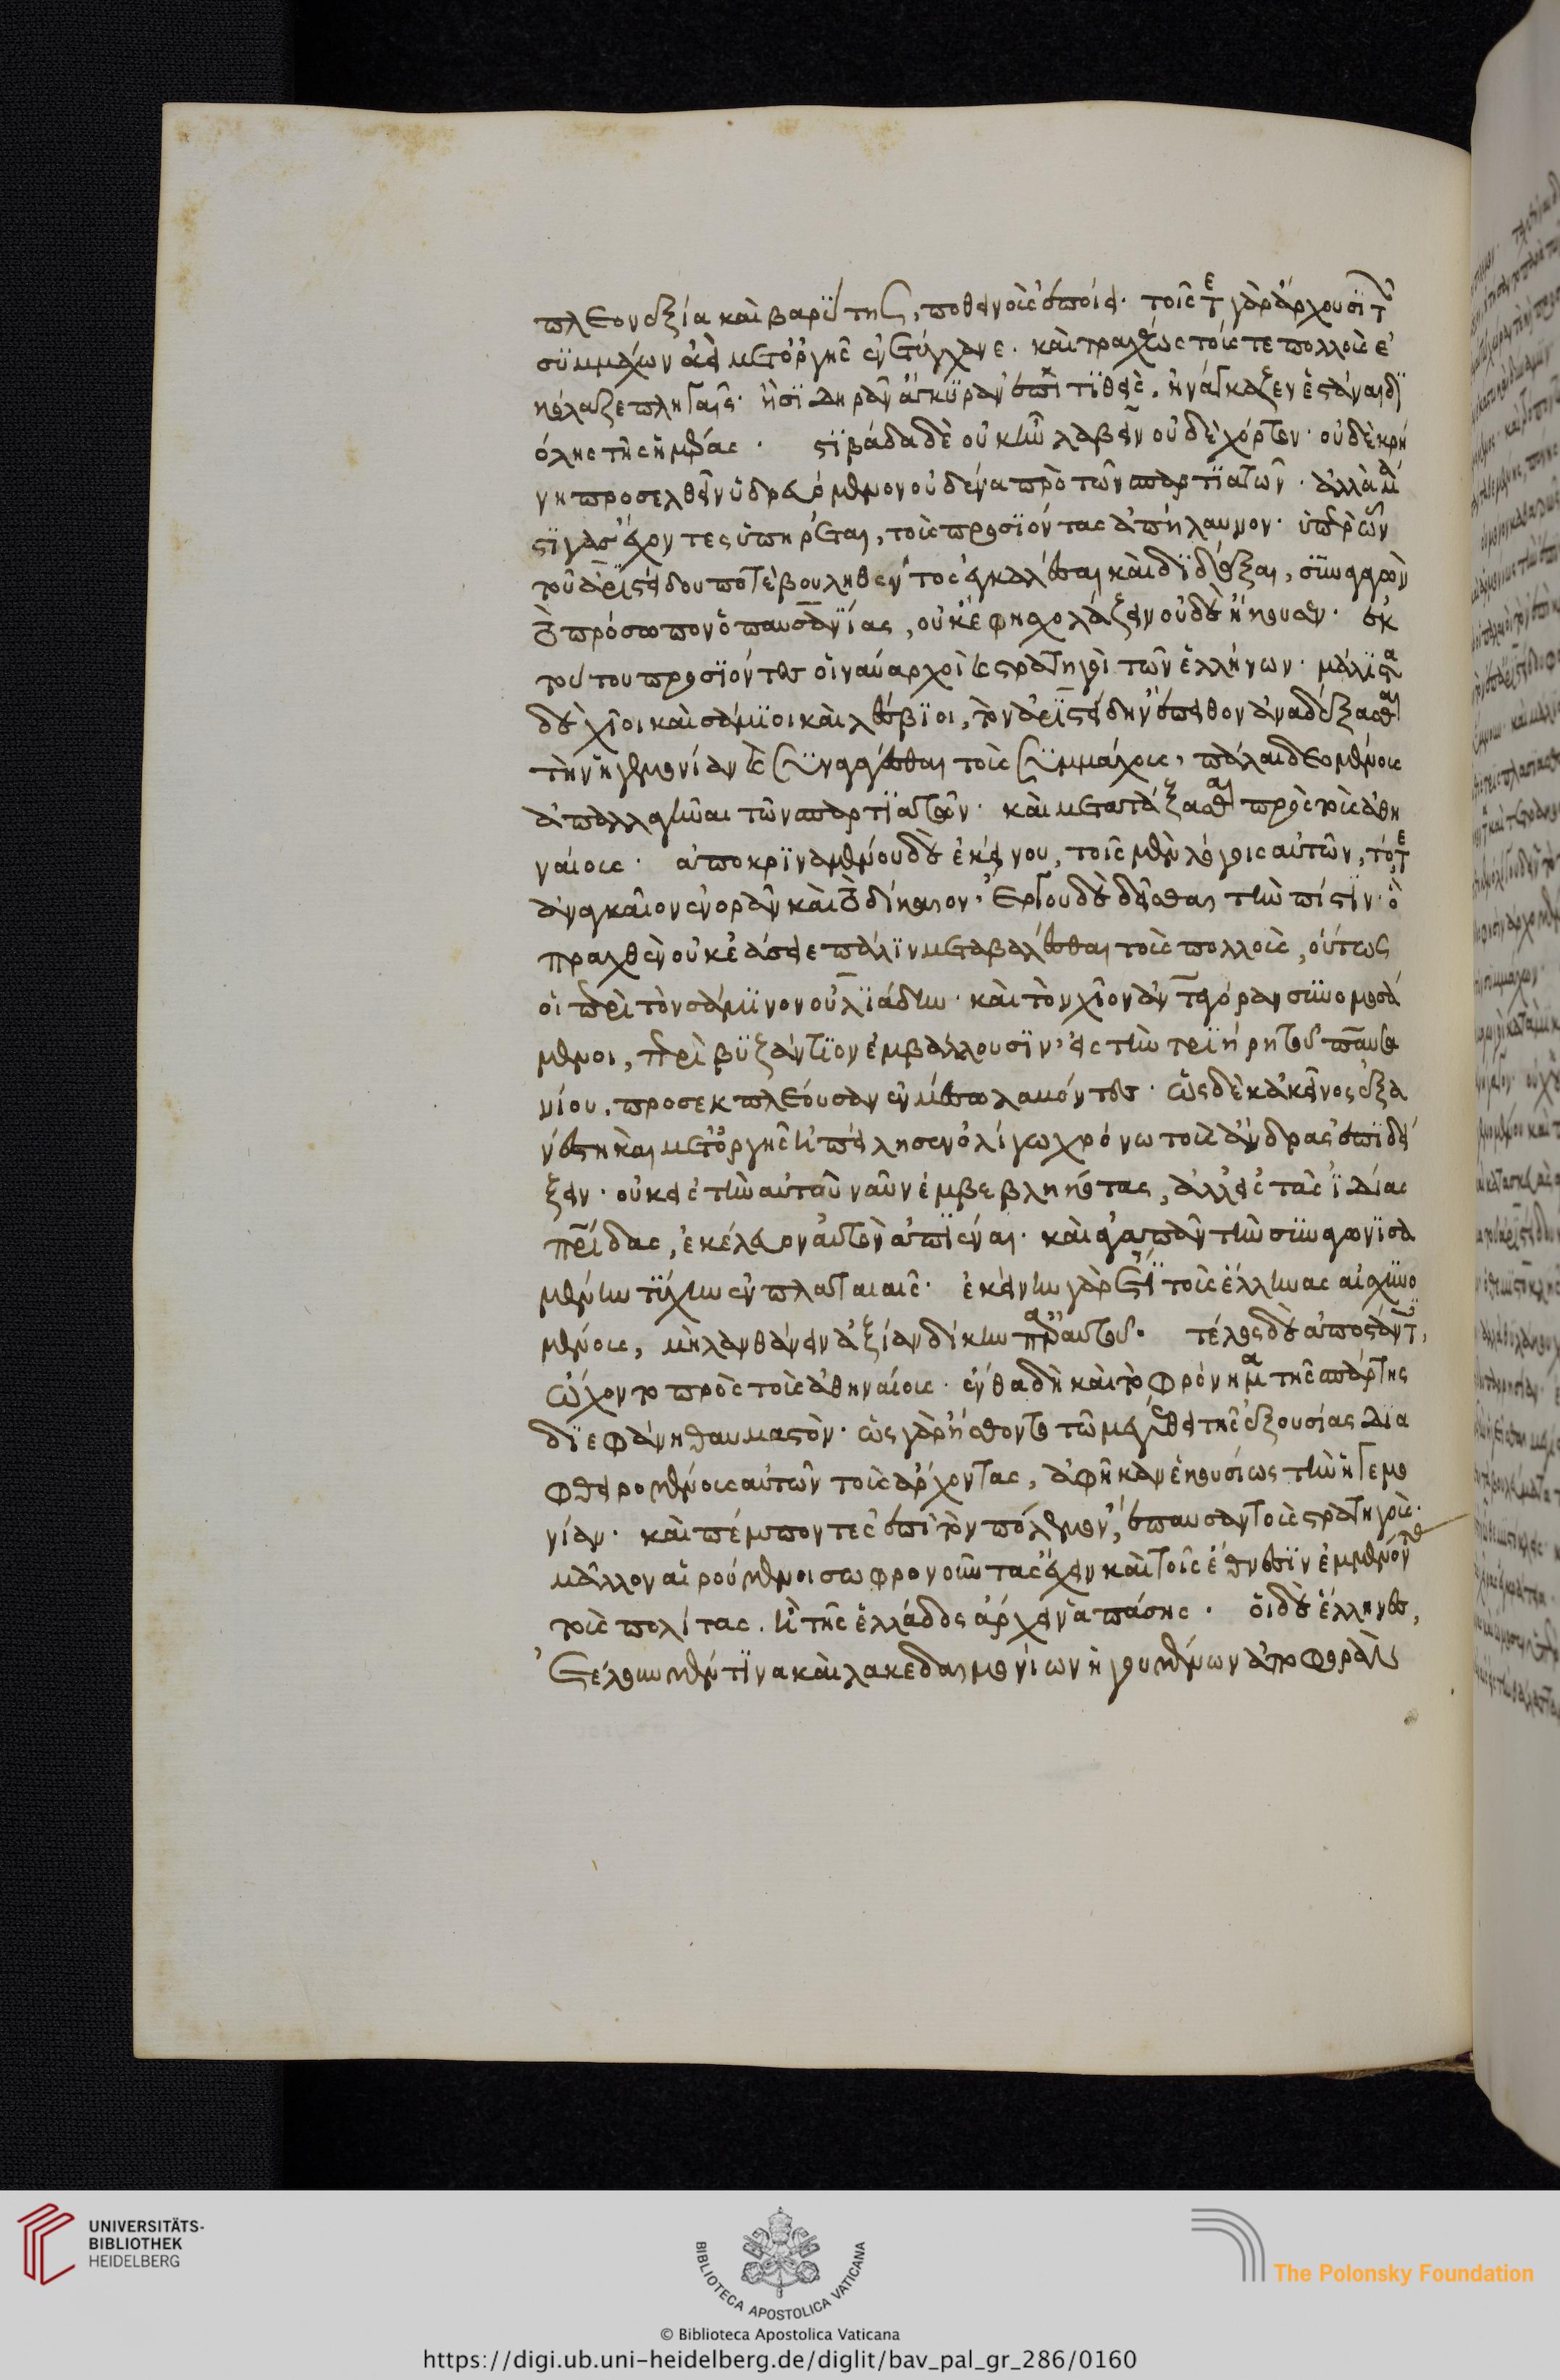 πλεονεξία καὶ βαρύτης, ποθεινοὺς ἐποίει. τοῖς τε γὰρ ἄρχουσϊ τῶν
συμμάχων ἀεὶ μετ' ὀργῆς ἐνετύγχανε. καὶ τραχέως τούς τε πολλοὺς ἐ
κόλαζε πληγαῖς. ἢ σϊδηρᾶν ἄγκϋραν ἐπιτϊθεὶς, ἠνάγκαζεν ἑστάναι δϊ'
ὅλης τῆς ἡμέρας. στϊβάδα δὲ οὐκ ἦν λαβεῖν οὐδὲ χόρτον. οὐδὲ κρή
νη προσελθεῖν ὑδρευόμενον οὐδένα πρὸ τῶν σπαρτϊατῶν. ἀλλὰ μά
στϊγας ἔχοντες ὑπηρέται, τοὺς προσϊόντας ἀπήλαυνον. ὑπὲρ ὧν
τοῦ ἀρϊστείδου ποτὲ βουληθέντος ἐγκαλέσαι καὶ δϊδάξαι, συναγαγὼν
τὸ πρόσωπον ὁ παυσανϊας, οὐκ ἔφη σχολάζειν οὐδὲ ἤκουεν. ἐκ
τούτου προσϊόντες οἱ ναύαρχοι καὶ στρατηγοὶ τῶν ἑλλήνων. μάλϊστα
δὲ χῖοι καὶ σάμϊοι καὶ λέσβϊοι, τὸν ἀρϊστείδην ἔπειθον ἀναδέξασθαι
τὴν ἡγεμονίαν καὶ συναγαγέσθαι τοὺς συμμάχους, πάλαι δεομένους
ἀπαλλαγῆναι τῶν σπαρτϊατῶν. καὶ μετατάξασθαι πρὸς τοὺς ἀθη
ναίους. ἀποκρϊναμένου δὲ ἐκείνου, τοῖς μὲν λόγοις αὐτῶν, τό,τε
ἀναγκαῖον ἐνορᾶν καὶ τὸ δίκαιον, ἔργου δὲ δεῖσθαι τὴν πίστϊν. ὃ
πραχθὲν οὐκ ἐάσειε πάλϊν μεταβαλέσθαι τοὺς πολλοὺς, οὕτως
οἱ περὶ τὸν σάμϊνον οὐλϊάδην. καὶ τὸν χῖον ἀνταγόραν συνομοσά
μενοι, περὶ βϋζάντϊον ἐμβάλλουσϊν, εἰς τὴν τρϊήρη τοῦ παυσα
νίου. προσεκπλέουσαν ἐν μέσω λαμόντες. ὡς δὲ κἀκεῖνος ἐξα
νέστη καὶ μετ' ὀργῆς ἠπείλησεν ὀλίγω χρόνω τοὺς ἄνδρας ἐπϊδεί
ξειν. οὐκ εἰς τὴν αὐτοῦ ναῦν ἐμβεβληκότας, ἀλλ' εἰς τὰς ϊδίας
πατρίδας, ἐκέλευον αὐτὸν ἀπϊέναι. καὶ ἀγαπᾶν τὴν συναγωνϊσα
μένην τύχην ἐν πλαταιαῖς. ἐκείνην γὰρ ἔτϊ τοὺς ἕλληνας αἰσχυνο
μένους, μὴ λαμβάνειν ἀξίαν δίκην παρ' αὐτοῦ. τέλος δὲ ἀποστάντες,
ὤχοντο πρὸς τοὺς ἀθηναίους. ἔνθα δὴ καὶ τὸ φρόνημα τῆς σπάρτης
δϊεφάνη θαυμαστὸν. ὡς γὰρ ἤσθοντο τῶ μεγέθει τῆς ἐξουσίας δϊα
φθειρομένους αὐτῶν τοὺς ἄρχοντας, ἀφῆκαν ἑκουσίως τὴν ἡγεμο
νίαν. καὶ πέμποντες ἐπὶ τὸν πόλεμον, ἐπαύσαντο στρατηγοὺς.
μᾶλλον αἱρούμενοι σωφρονοῦντας ἔχειν καὶ τοῖς ἔθνεσϊν ἐμμένοντας
τοὺς πολίτας. ἢ τῆς ἑλλάδος ἄρχειν ἁπάσης. οἱ δὲ ἕλληνες,
ἐτέλουν μέν τϊνα καὶ λακεδαιμονίων ἡγουμένων ἀποφορὰν
UNIVERSITÄTS-
BIBLIOTHEK
HEIDELBERG
BIBLIOTECA APOSTOLICA VATICANA
The Polonsky Foundation
© Biblioteca Apostolica Vaticana
https://digi.ub.uni-heidelberg.de/diglit/bav_pal_gr_286/0160